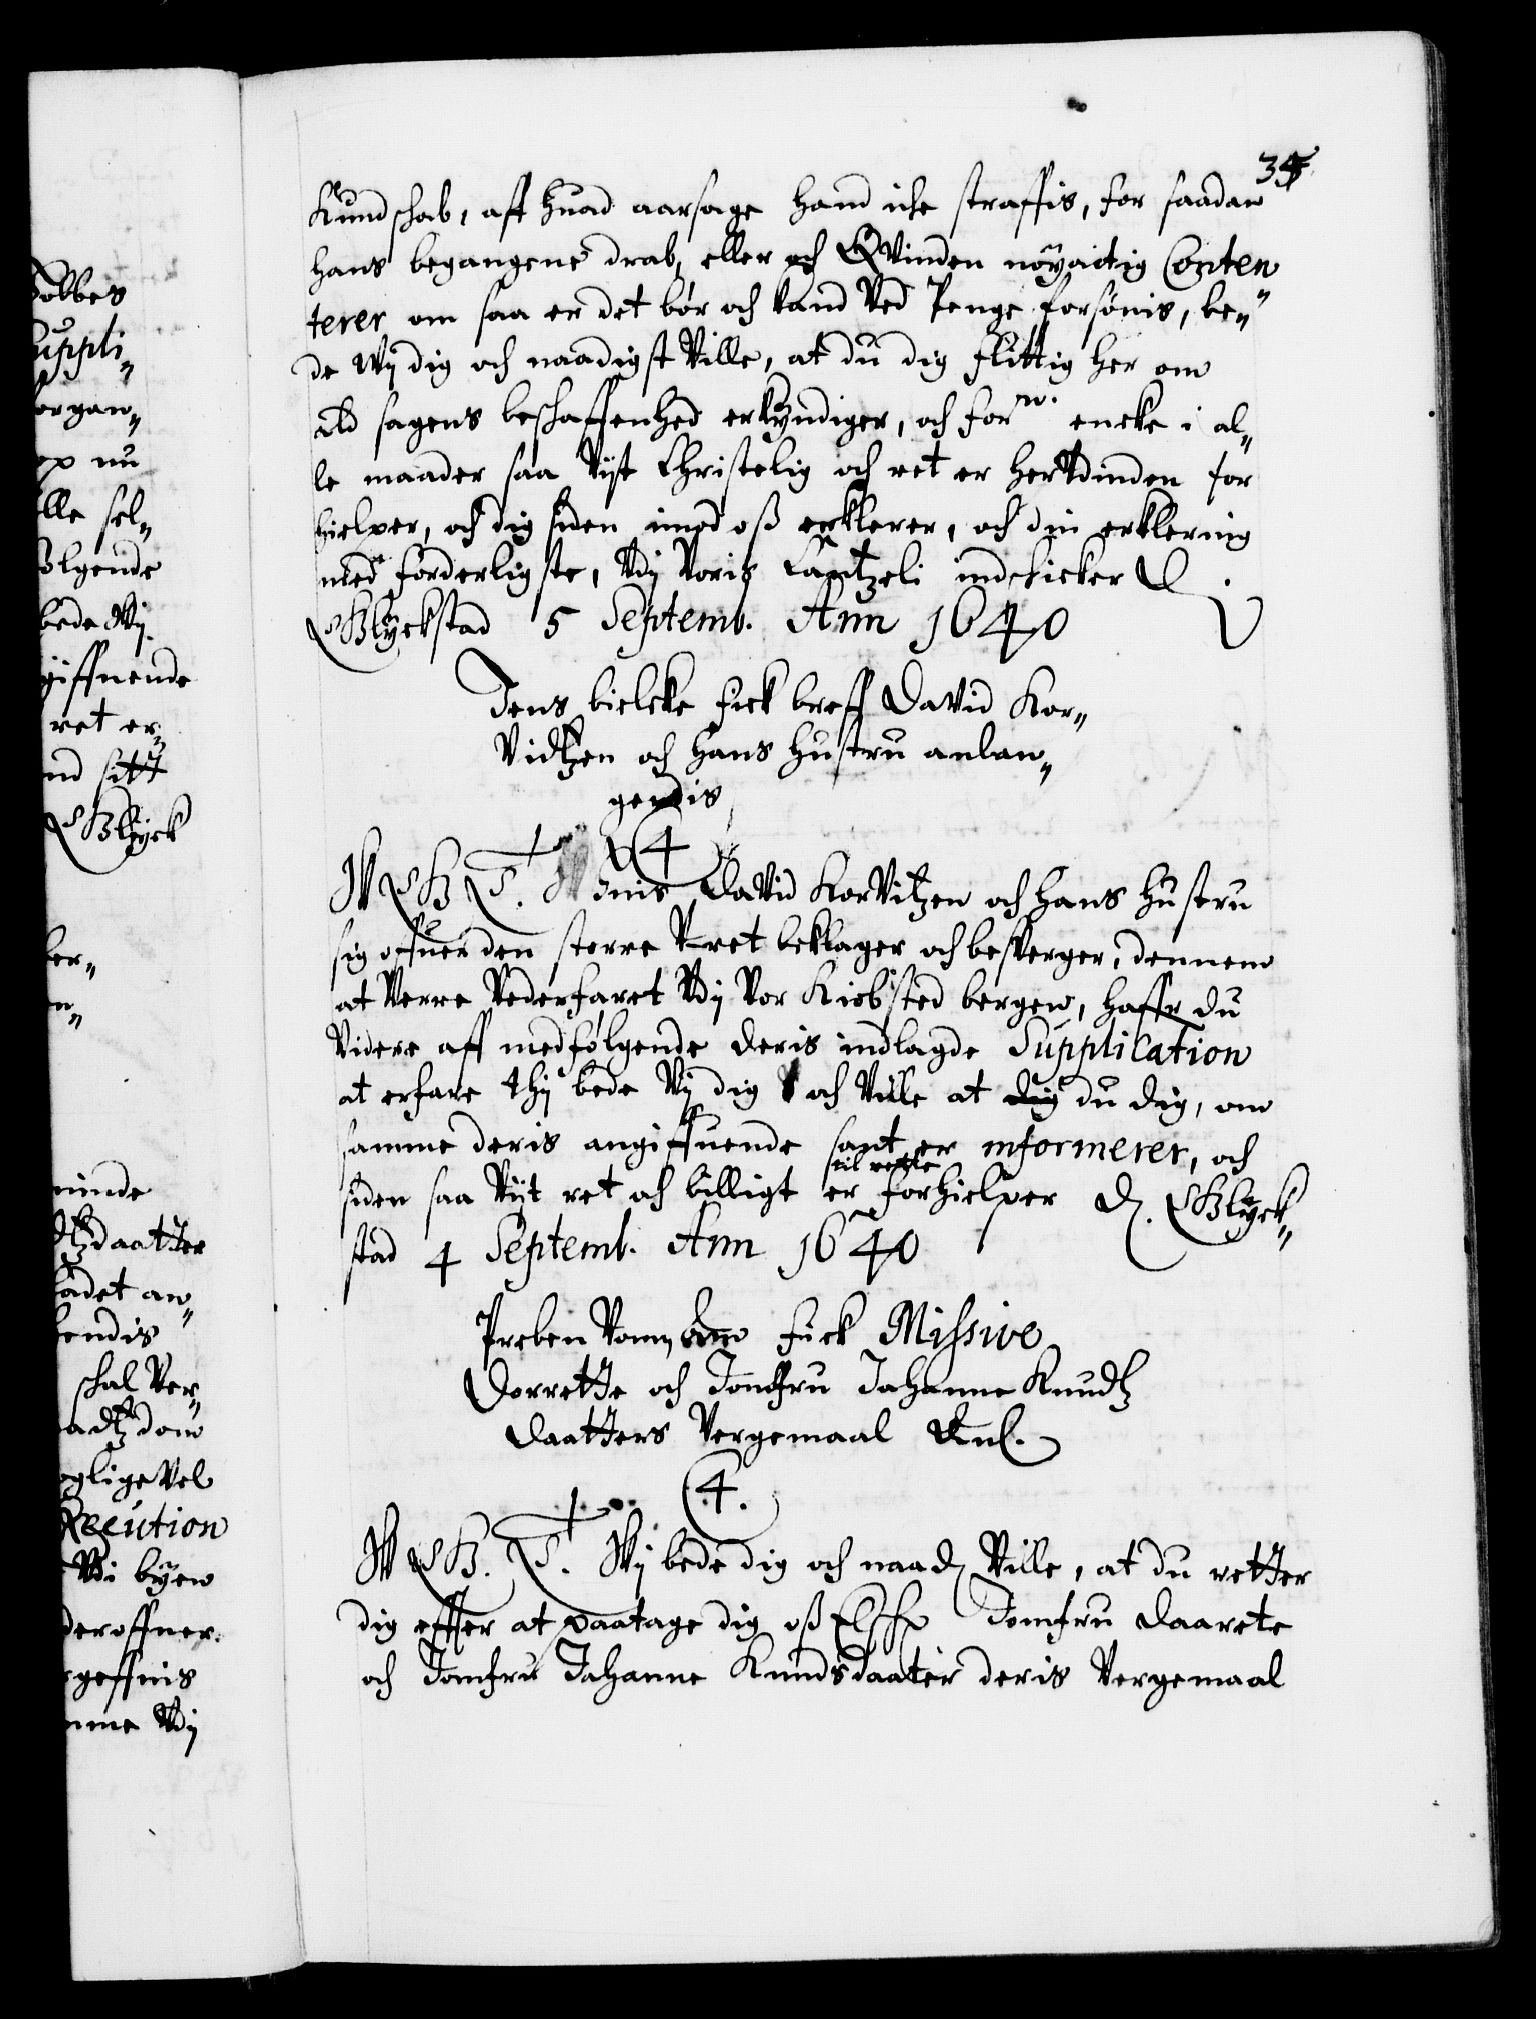 35
Kundschab, aff huad aarsage hand icke straffis, for saadan
hans begangene drab, eller och Qvinden nöyactig Conten
terer om saa er det bør och kand Ved Penge forsönis, be„
de Wij dig och naadigst Ville, at du dig flittig her om
Ald sagens beschaffenhed erkyndiger, och forn. encke i al„
le maader saa Vijt Christelig och ret er her Vdinden for
hielper, och dig siden imod oß erklerer, och din erklering
med forderligste, Vdj Voris Cantzeli indschicker D.
Glyckstad 5 Septemb. Ann 1640
Jens bielcke fick breff David Kor„
Vidtzen och hans hustru anlan„
gendis
4
W G T. Wiis David KorVitzen och hans hustru
sig offuer den storre Vret beklager och besverger, dennem
at Verre Vederfaret Vdj Vor Kiøbsted bergen, haffr du
Videre aff medfølgende deris indlagde Supplication
at erfare thj bede Vj dig och Ville at dig du dig, om
samme deris angiffuende sant er informerer, och
til rette
siden saa Vijt ret och billigt er forhielper D. Glyck„
stad 4 Septemb. Ann 1640
Preben Vonn fick Missive
Dorrette och Jomfru Johanne Knudtz
daatters Vergemaal Anl.
4.
W G. T. Wij bede dig och naad Ville, at du retter
dig effter at paatage dig oß Elsch Jomfru Daarete
och Jomfru Johanne Knudsdaater deris Vergemaal